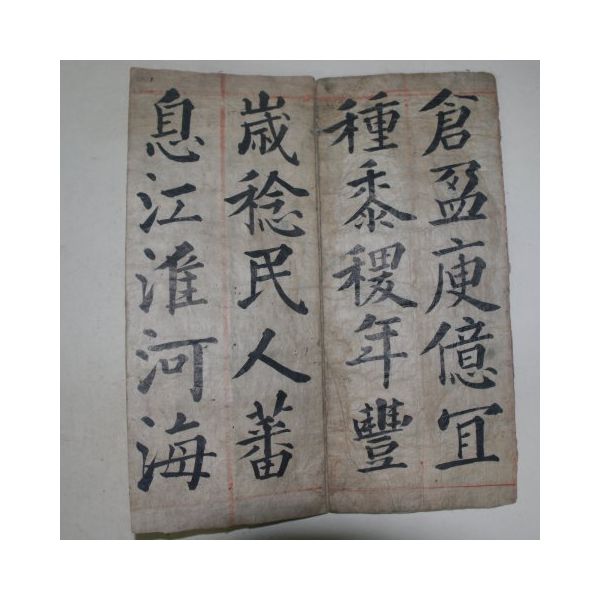 倉盈庾億冝
種黍稷年豐
歲稔民人蕃
息江淮河海